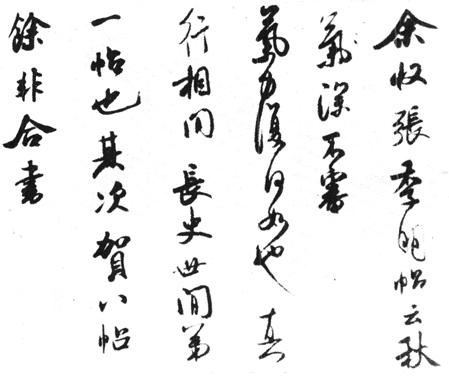 余收張季明帖云秋
氣深不審
氣力復何如也 真
行相間 長史世間第
一帖也其次賀八帖
餘非合書